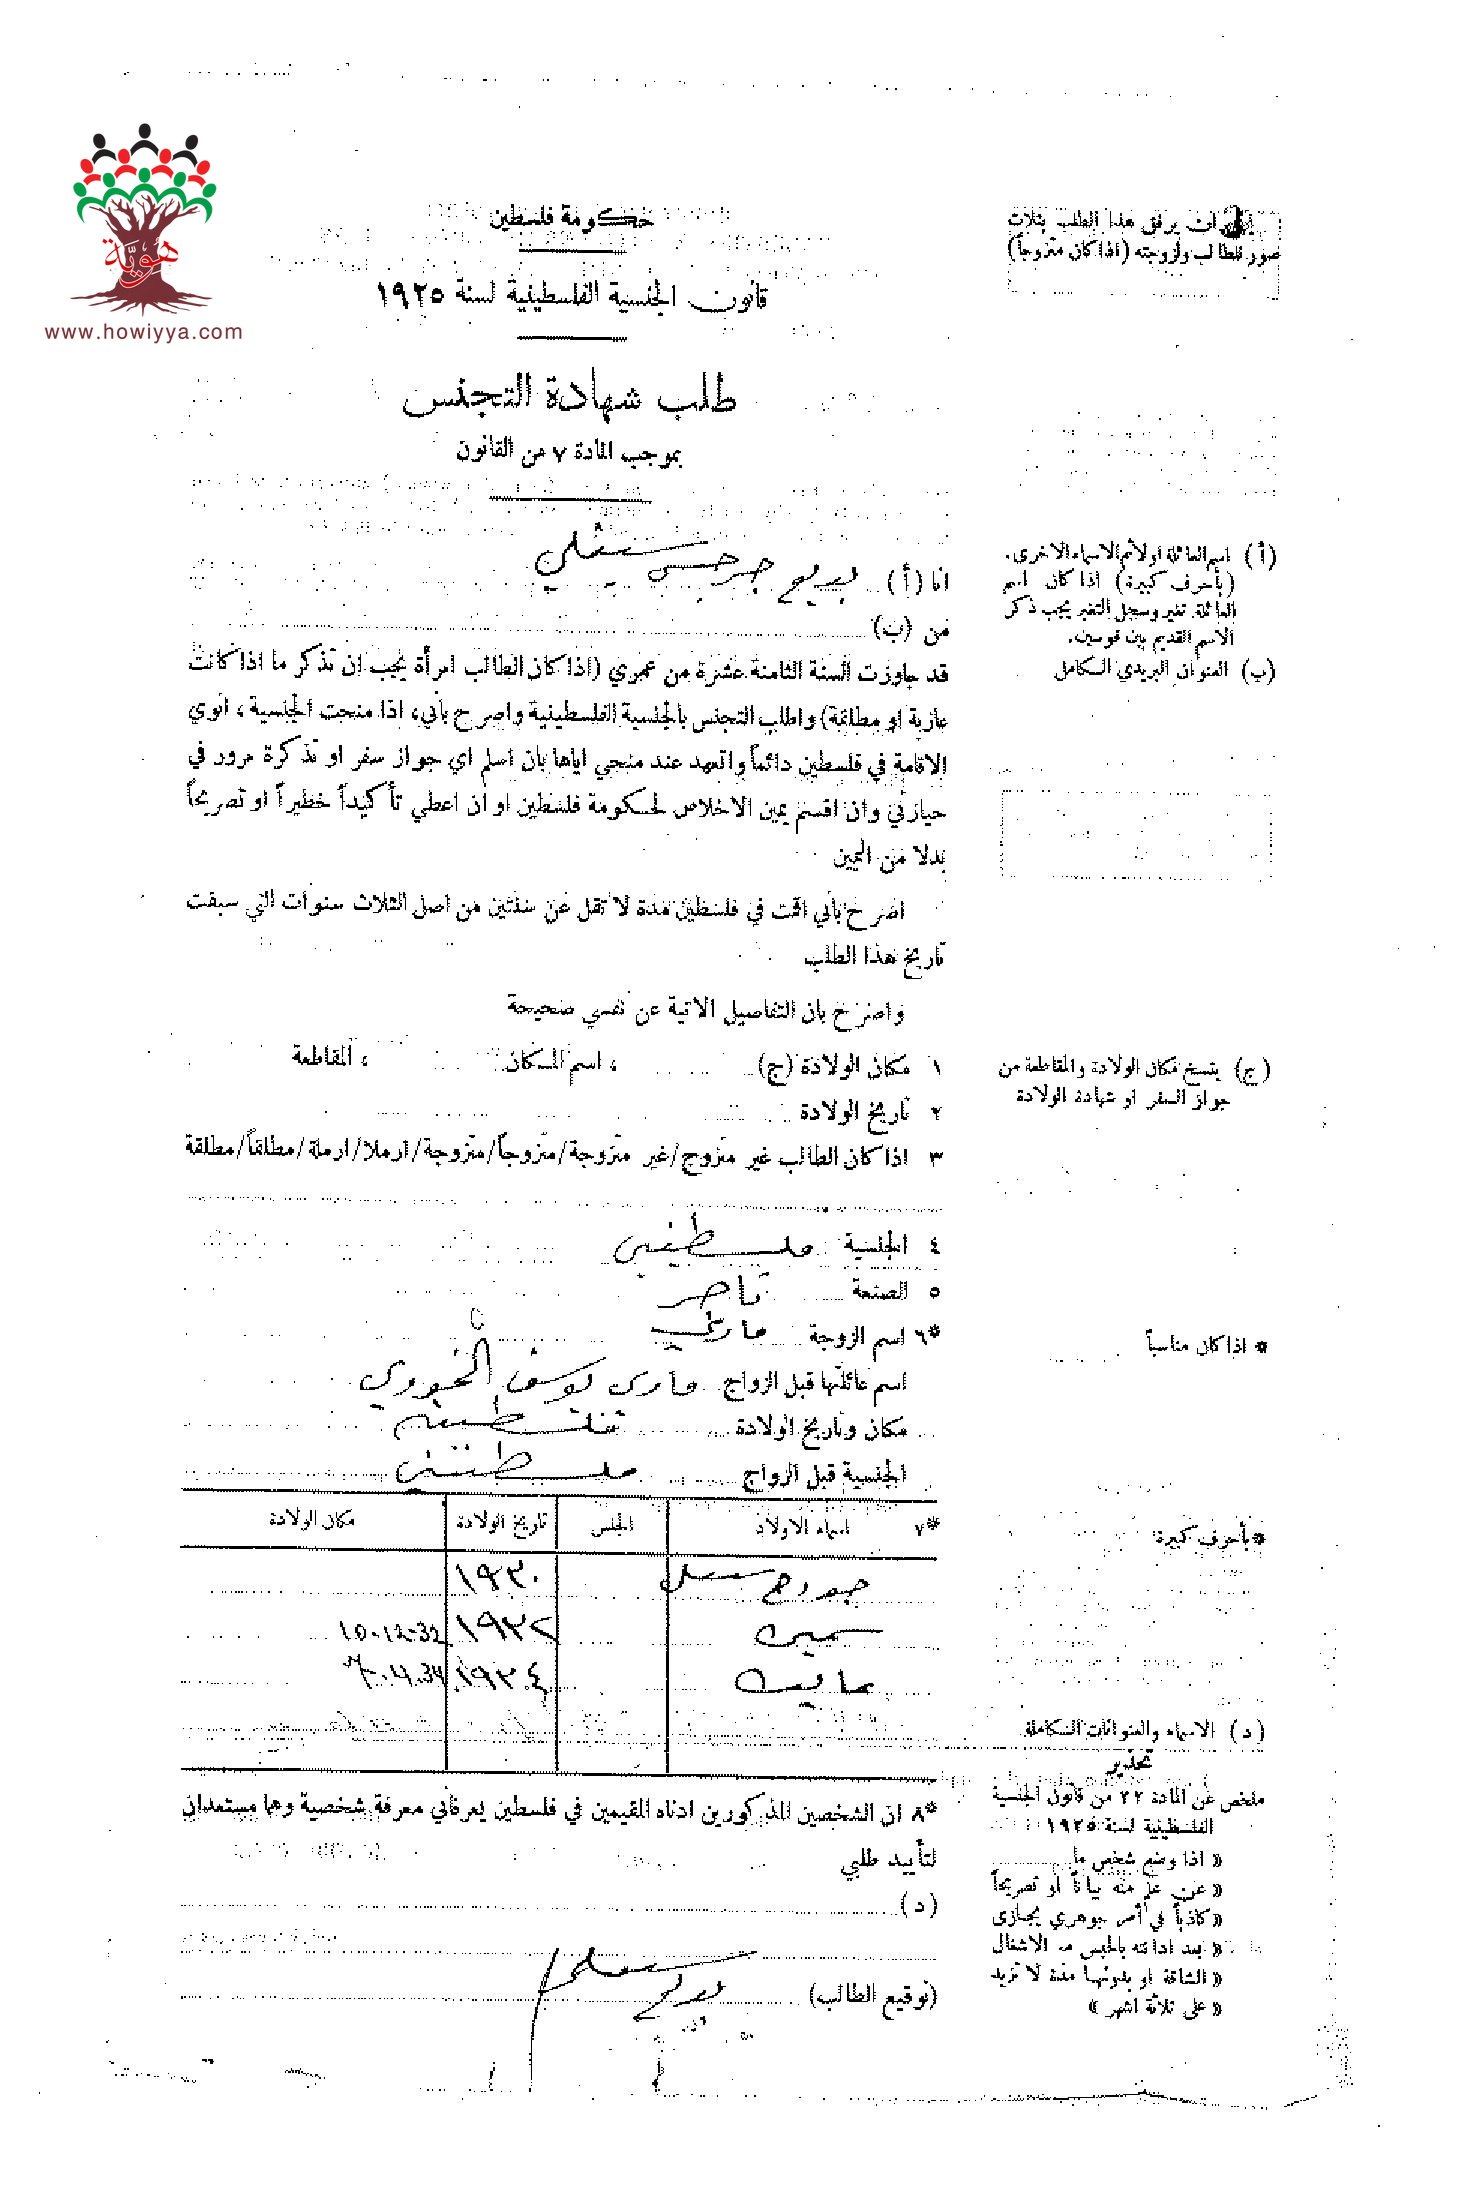 هوية
www.howiyya.com
حكومة فلسطين
يرفق هذا الطلب بثلاث
صور للطالب ولزوجته (اذا كان متزوجاً)
قانون الجنسية الفلسطينية لسنة ١٩٢٥
طلب شهادة التجنس
بموجب المادة ٧ من القانون
انا (أ) بديع جرجس سيقلي
من (ب)
(أ) اسم العائلة اولا ثم الاسماء الاخرى.
(بأحرف كبيرة) اذا كان اسم
العائلة تغير وسجل التغير يجب ذكر
الاسم القديم بين قوسين.
(ب) العنوان البريدي الكامل
قد جاوزت السنة الثامنة عشرة من عمري (اذا كان الطالب امرأة يجب ان تذكر ما اذا كانت
عازبة او مطلقة) واطلب التجنس بالجنسية الفلسطينية واصرح بأني، اذا منحت الجنسية، انوي
الاقامة في فلسطين دائماً واتعهد عند منحي اياها بان اسلم اي جواز سفر او تذكرة مرور في
حيازتي وان اقسم يمين الاخلاص لحكومة فلسطين او ان اعطي تأكيداً خطيراً او تصريحاً
بدلا من اليمين
اصرح بأني اقمت في فلسطين مدة لا تقل عن سنتين من اصل الثلاث سنوات التي سبقت
تاريخ هذا الطلب
واصرح بان التفاصيل الاتية عن نفسي صحيحة
١ مكان الولادة (ج) ، اسم المكان ، المقاطعة
(ج) ينسخ مكان الولادة والمقاطعة من
جواز السفر او شهادة الولادة
٢ تاريخ الولادة
٣ اذا كان الطالب غير متزوج/غير متزوجة/متزوجاً/متزوجة/ارملا/ارملة/مطلقاً/مطلقة
٤ الجنسية فلسطيني
٥ الصنعة تاجر
*٦ اسم الزوجة ماري
* اذا كان مناسباً
اسم عائلتها قبل الزواج ماري يوسف الخوري
مكان وتاريخ الولادة فلسطين
الجنسية قبل الزواج فلسطيني
*٧ اسماء الاولاد الجنس تاريخ الولادة مكان الولادة
*بأحرف كبيرة
جورج سيقلي ١٩٣٠
سمير ١٩٣٢ 10-12-32
١٩٣٤
(د) الاسماء والعنوانات الكاملة
تحذير
ملخص عن المادة ٢٢ من قانون الجنسية
الفلسطينية لسنة ١٩٢٥
« اذا وضع شخص ما
« عن علم منه بياناً او تصريحاً
« كاذباً في أمر جوهري يجازى
« بعد ادانته بالحبس مع الاشغال
« الشاقة او بدونها مدة لا تزيد
« على ثلاثة اشهر »
*٨ ان الشخصين المذكورين ادناه المقيمين في فلسطين يعرفاني معرفة شخصية وهما مستعدان
لتأييد طلبي
(د)
(توقيع الطالب) بديع سيقلي